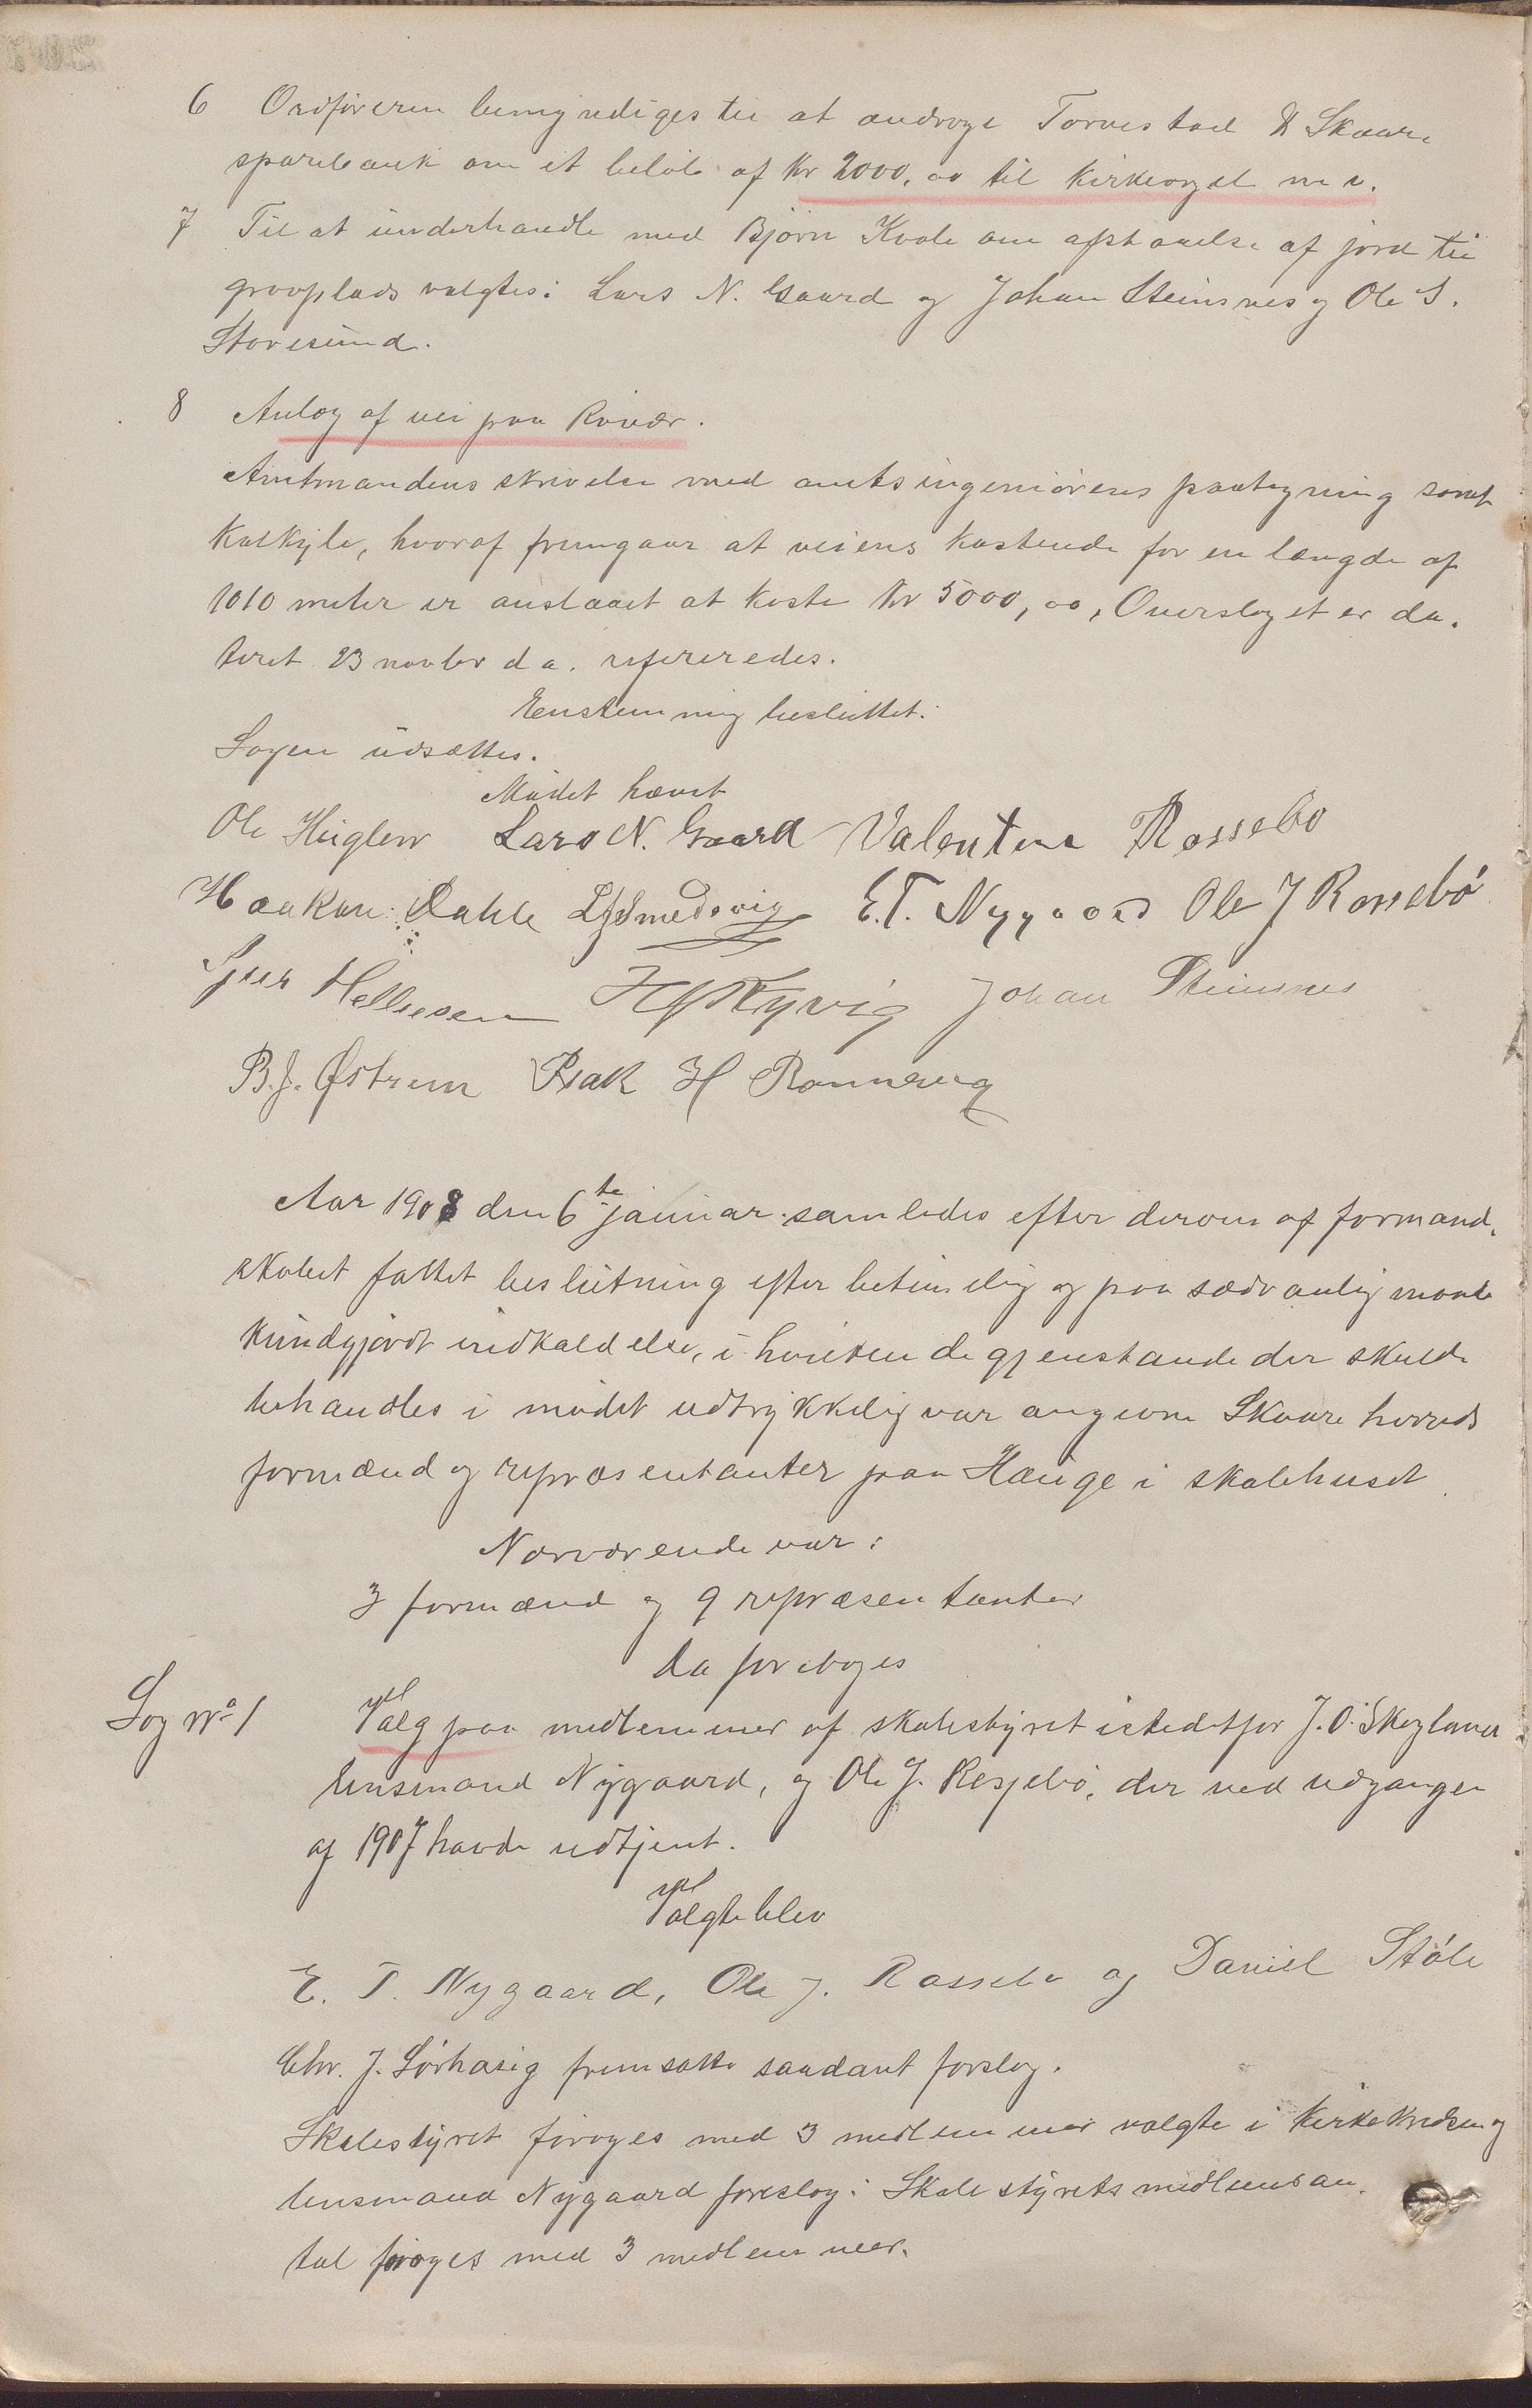 6 Ordføreren bemyndiges til at andrage Torvestad & Skaare
sparebank om et beløb af Kr 2000,00 til kirkeorgel m. v.
7 Til at underhandle med Bjørn Kvale om afstaaelse af jord til
gravplads valgtes: Lars N. Gaard og Johan Steinsnes og Ole S.
Storesund.
8 Anlæg af vei paa Røvær.
Amtmandens skrivelse med amtsingeniørens paategning samt
kalkyle, hvoraf fremgaar at veiens kostende for en længde af
1010 meter er anslaaet at koste Kr 5000,00, Overslaget er da-
teret 23 novbr d a. refereredes.
Enstemmig besluttet:
Sagen udsættes.
Mødet hævet
Ole Huglen Lars N. Gaard Valentin Røssebø
Haakon Dahle Smedsvig E. T. Nygaard Ole J Røssebø
Sjur Helliesen Kyvig Johan Steinsnes
B. J. Østrem Isak H Rønnevig
Aar 1908 den 6te januar samledes efter derom af formand-
skabet fattet beslutning efter betimelig og paa sædvanlig maade
kundgjordt indkaldelse, i hvilken de gjenstande der skulde
behandles i mødet udtrykkelig var angivne Skaare herreds
formænd og repræsentanter paa Hauge i skolehuset
Nærværende var:
3 formænd og 9 repræsentanter
Da foretoges
Sag No 1 Valg paa medlemmer af skolestyret istedetfor J. O. Skegland
lensmand Nygaard, og Ole J. Røssebø, der ved udgangen
af 1907 havde udtjent.
Valgte blev
E. T. Nygaard, Ole J. Røssebø og Daniel Støle
Chr. J. Sørhaug fremsatte saadant forslag.
Skolestyret forøges med 3 medlemmer valgte i Kirkekredsen og
lensmand Nygaard foreslog: Skolestyrets medlemsan-
tal forøges med 3 medlemmer.